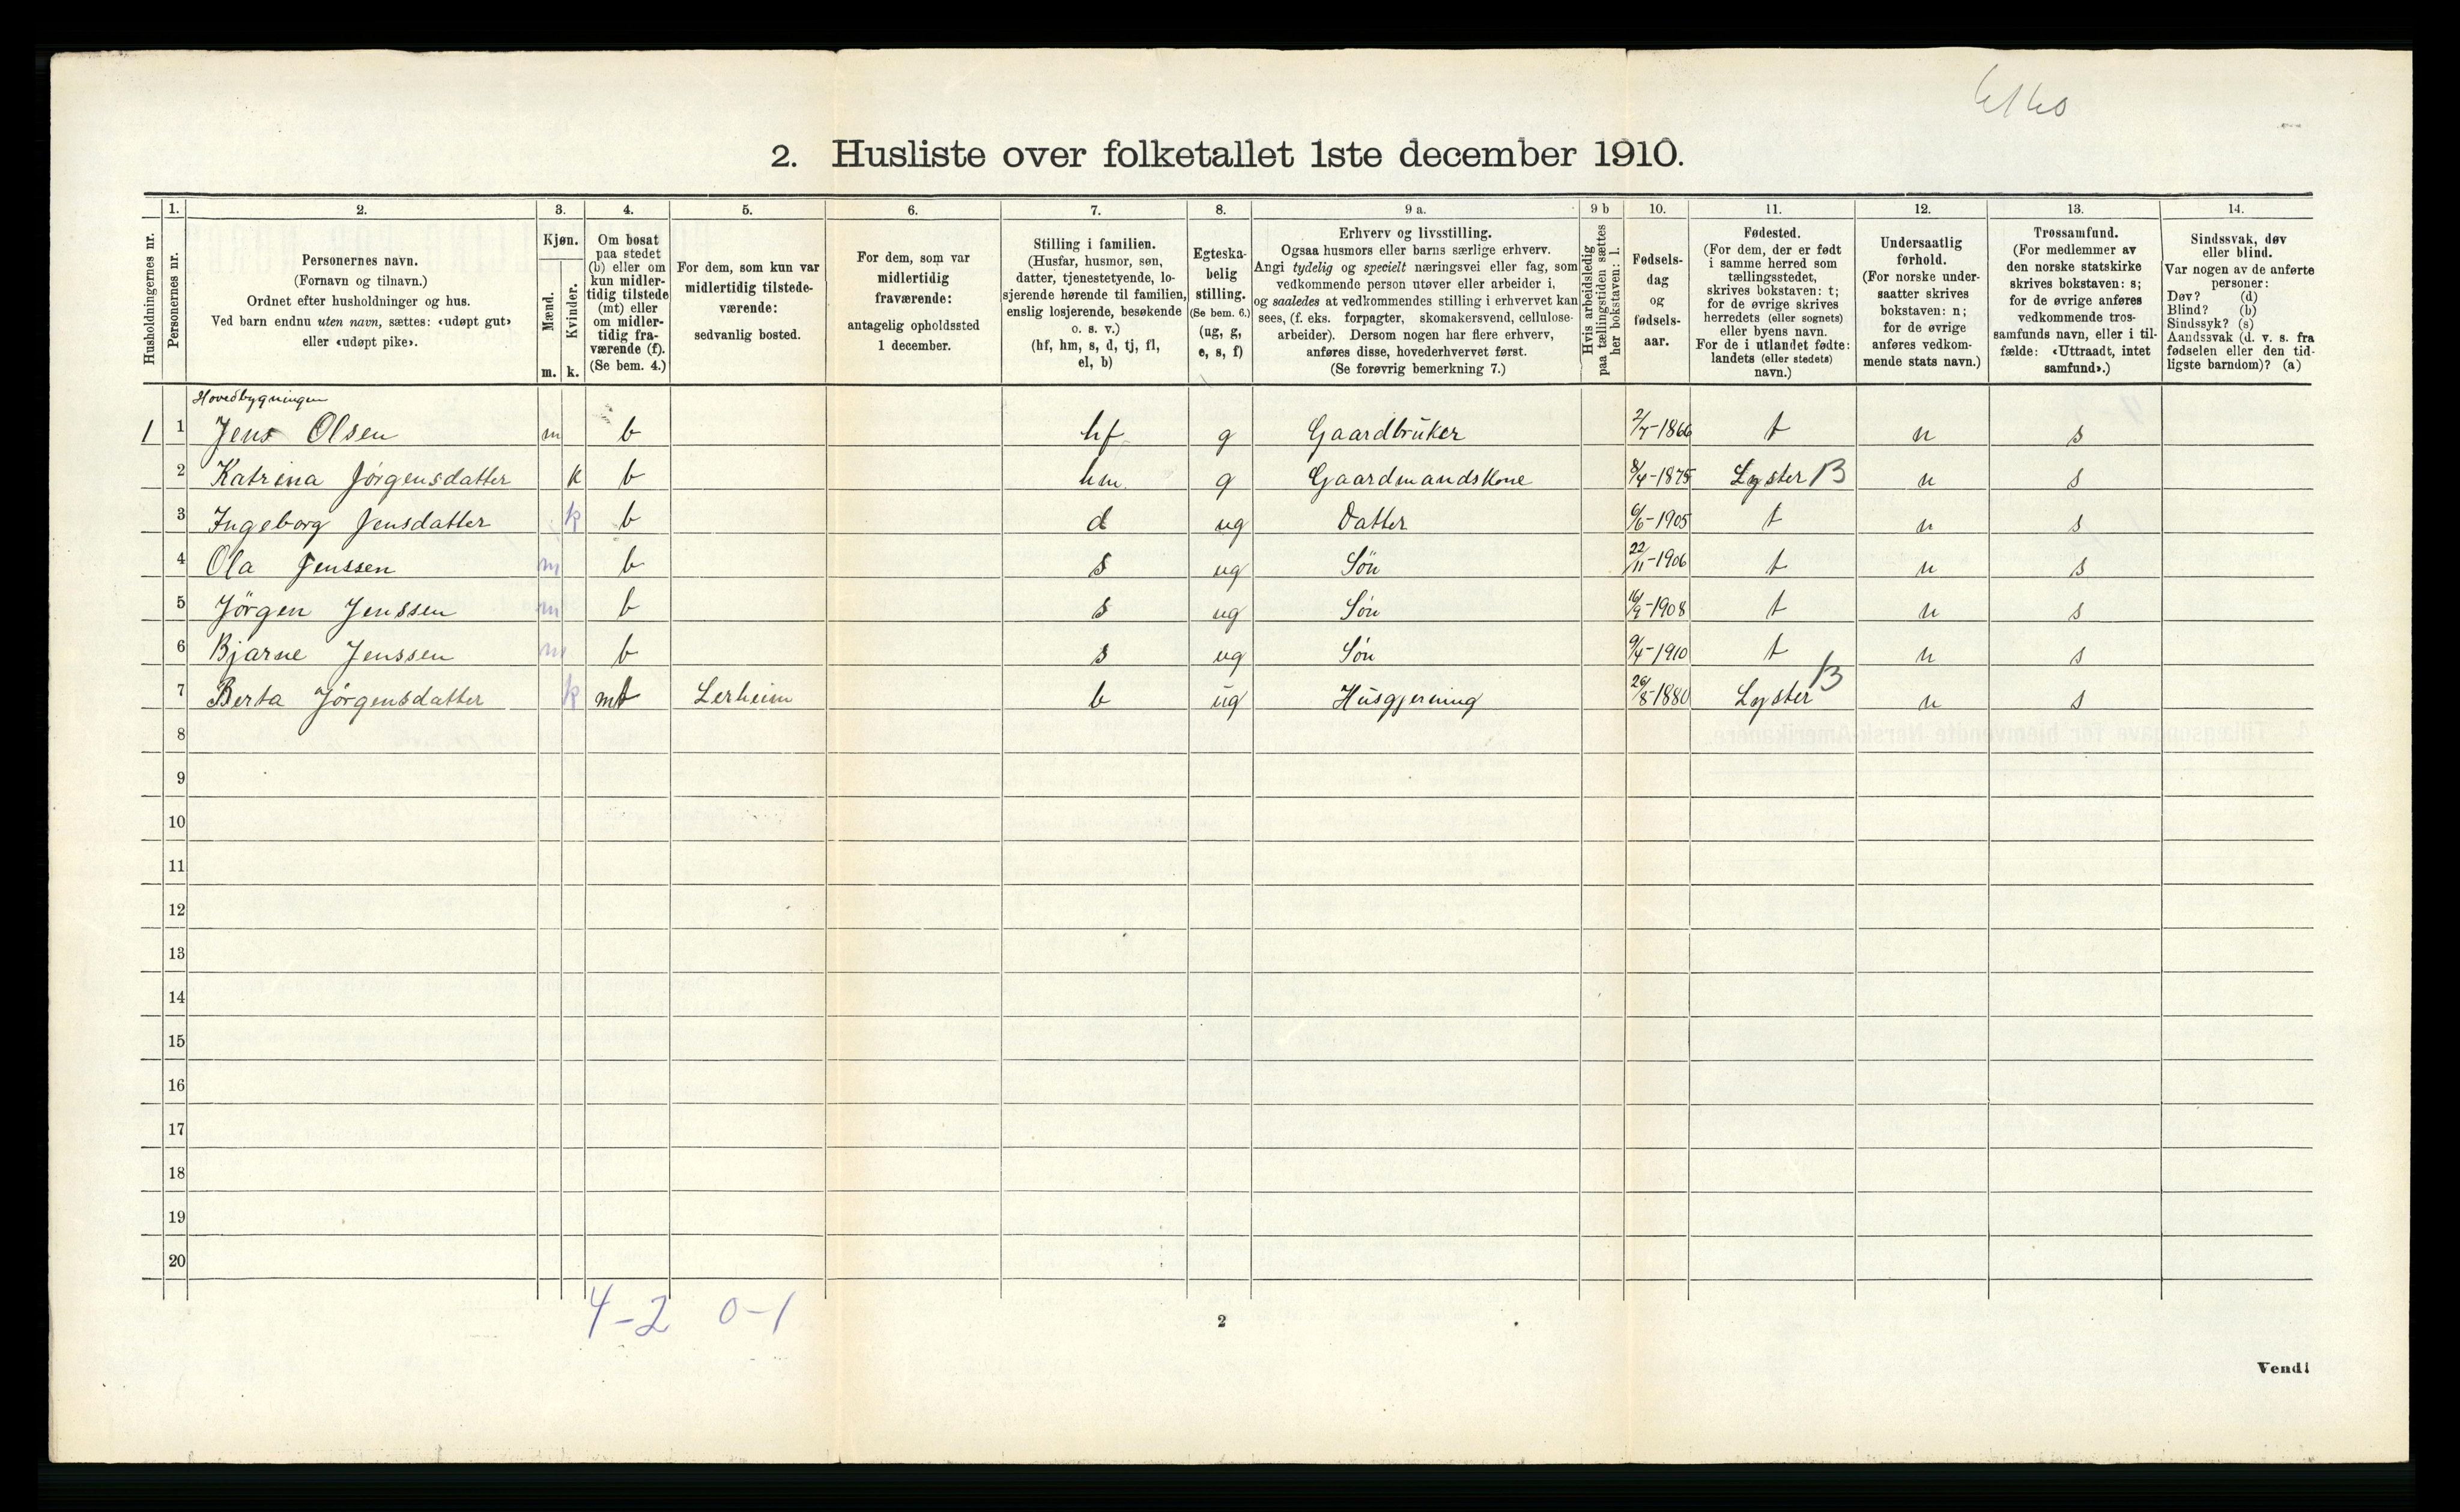 2. Husliste over folketallet 1ste december 1910.
Husholdningernes nr.
1.
Personernes nr.
2.
Personernes navn.
(Fornavn og tilnavn.)
Ordnet efter husholdninger og hus.
Ved barn endnu uten navn, sættes: «udøpt gut»
eller «udøpt pike».
3.
Kjøn.
Mænd.
Kvinder.
m. k.
4.
Om bosat
paa stedet
(b) eller om
kun midler-
tidig tilstede
(mt) eller
om midler-
tidig fra-
værende (f).
(Se bem. 4.)
5.
For dem, som kun var
midlertidig tilstede-
værende:
sedvanlig bosted.
6.
For dem, som var
midlertidig
fraværende:
antagelig opholdssted
1 december.
7.
Stilling i familien.
(Husfar, husmor, søn,
datter, tjenestetyende, lo-
sjerende hørende til familien,
enslig losjerende, besøkende
o. s. v.)
(hf, hm, s, d, tj, fl,
el, b)
8.
Egteska-
belig
stilling.
(Se bem. 6.)
(ug, g,
e, s, f)
9 a.
Erhverv og livsstilling.
Ogsaa husmors eller barns særlige erhverv.
Angi tydelig og specielt næringsvei eller fag, som
vedkommende person utøver eller arbeider i,
og saaledes at vedkommendes stilling i erhvervet kan
sees, (f. eks. forpagter, skomakersvend, cellulose-
arbeider). Dersom nogen har flere erhverv,
anføres disse, hovederhvervet først.
(Se forøvrig bemerkning 7.)
9 b
Hvis arbeidsledig
paa tællingstiden sættes
her bokstaven: l.
10.
Fødsels-
dag
og
fødsels-
aar.
11.
Fødested.
(For dem, der er født
i samme herred som
tællingsstedet,
skrives bokstaven: t;
for de øvrige skrives
herredets (eller sognets)
eller byens navn.
For de i utlandet fødte:
landets (eller stedets)
navn.)
12.
Undersaatlig
forhold.
(For norske under-
saatter skrives
bokstaven: n;
for de øvrige
anføres vedkom-
mende stats navn.)
13.
Trossamfund.
(For medlemmer av
den norske statskirke
skrives bokstaven: s;
for de øvrige anføres
vedkommende tros-
samfunds navn, eller i til-
fælde: «Uttraadt, intet
samfund».)
14.
Sindssvak, døv
eller blind.
Var nogen av de anførte
personer:
Døv? (d)
Blind? (b)
Sindssyk? (s)
Aandssvak (d. v. s. fra
fødselen eller den tid-
ligste barndom)? (a)
Hovedbygningen
1 1 Jens Olsen m b hf g Gaardbruker 2/7-1866 t n s
2 Katrina Jörgensdatter k b hm g Gaardmandskone 8/4-1875 Lyster B n s
3 Ingeborg Jensdatter k b d ug Datter 6/6-1905 t n s
4 Ola Jenssen m b s ug Sön 22/11-1906 t n s
5 Jörgen Jenssen m b s ug Sön 16/9-1908 t n s
6 Bjarne Jenssen m b s ug Sön 9/4-1910 t n s
7 Berta Jörgensdatter k mt Lerheim b ug Husgjerning 26/8-1880 Lyster B n s
8
9
10
11
12
13
14
15
16
17
18
19
20
4-2 0-1
2
Vend!